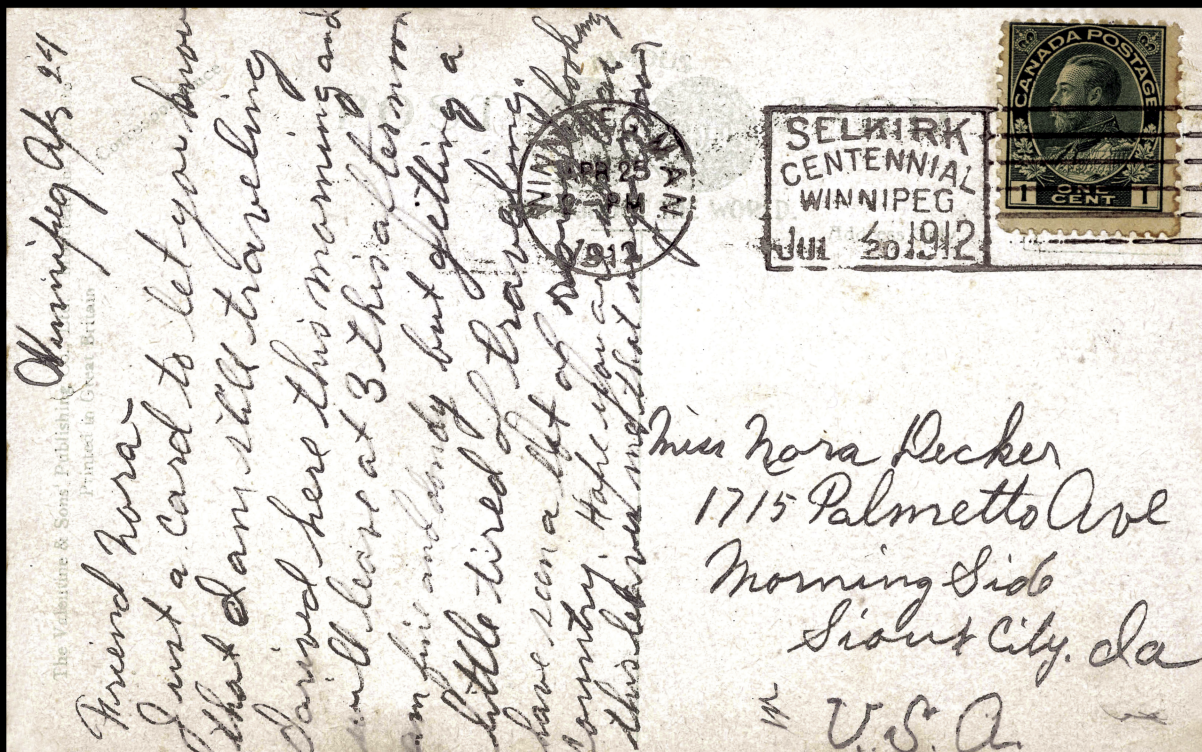 Winnipeg Apr 24
Friend Nora
Just a card to let you know
that I am still traveling
Iarived here this morning and
will leave at 3 this afternoon
am fine and dandy but getting a
little tired of traveling.
have seen a lot of looking
country. Hope you are
this that
The Valentine & Sons' Publishing
Printed in Great Britain
WINNIPEG MAN.
APR 25
12 - PM
1912
SELKIRK
CENTENNIAL
WINNIPEG
JUL 20 1912
CANADA POSTAGE
1 ONE CENT 1
WORLD.
Miss Nora Decker
1715 Palmetto Ave
Morning Side
Sioux City. Ia
U.S.A.